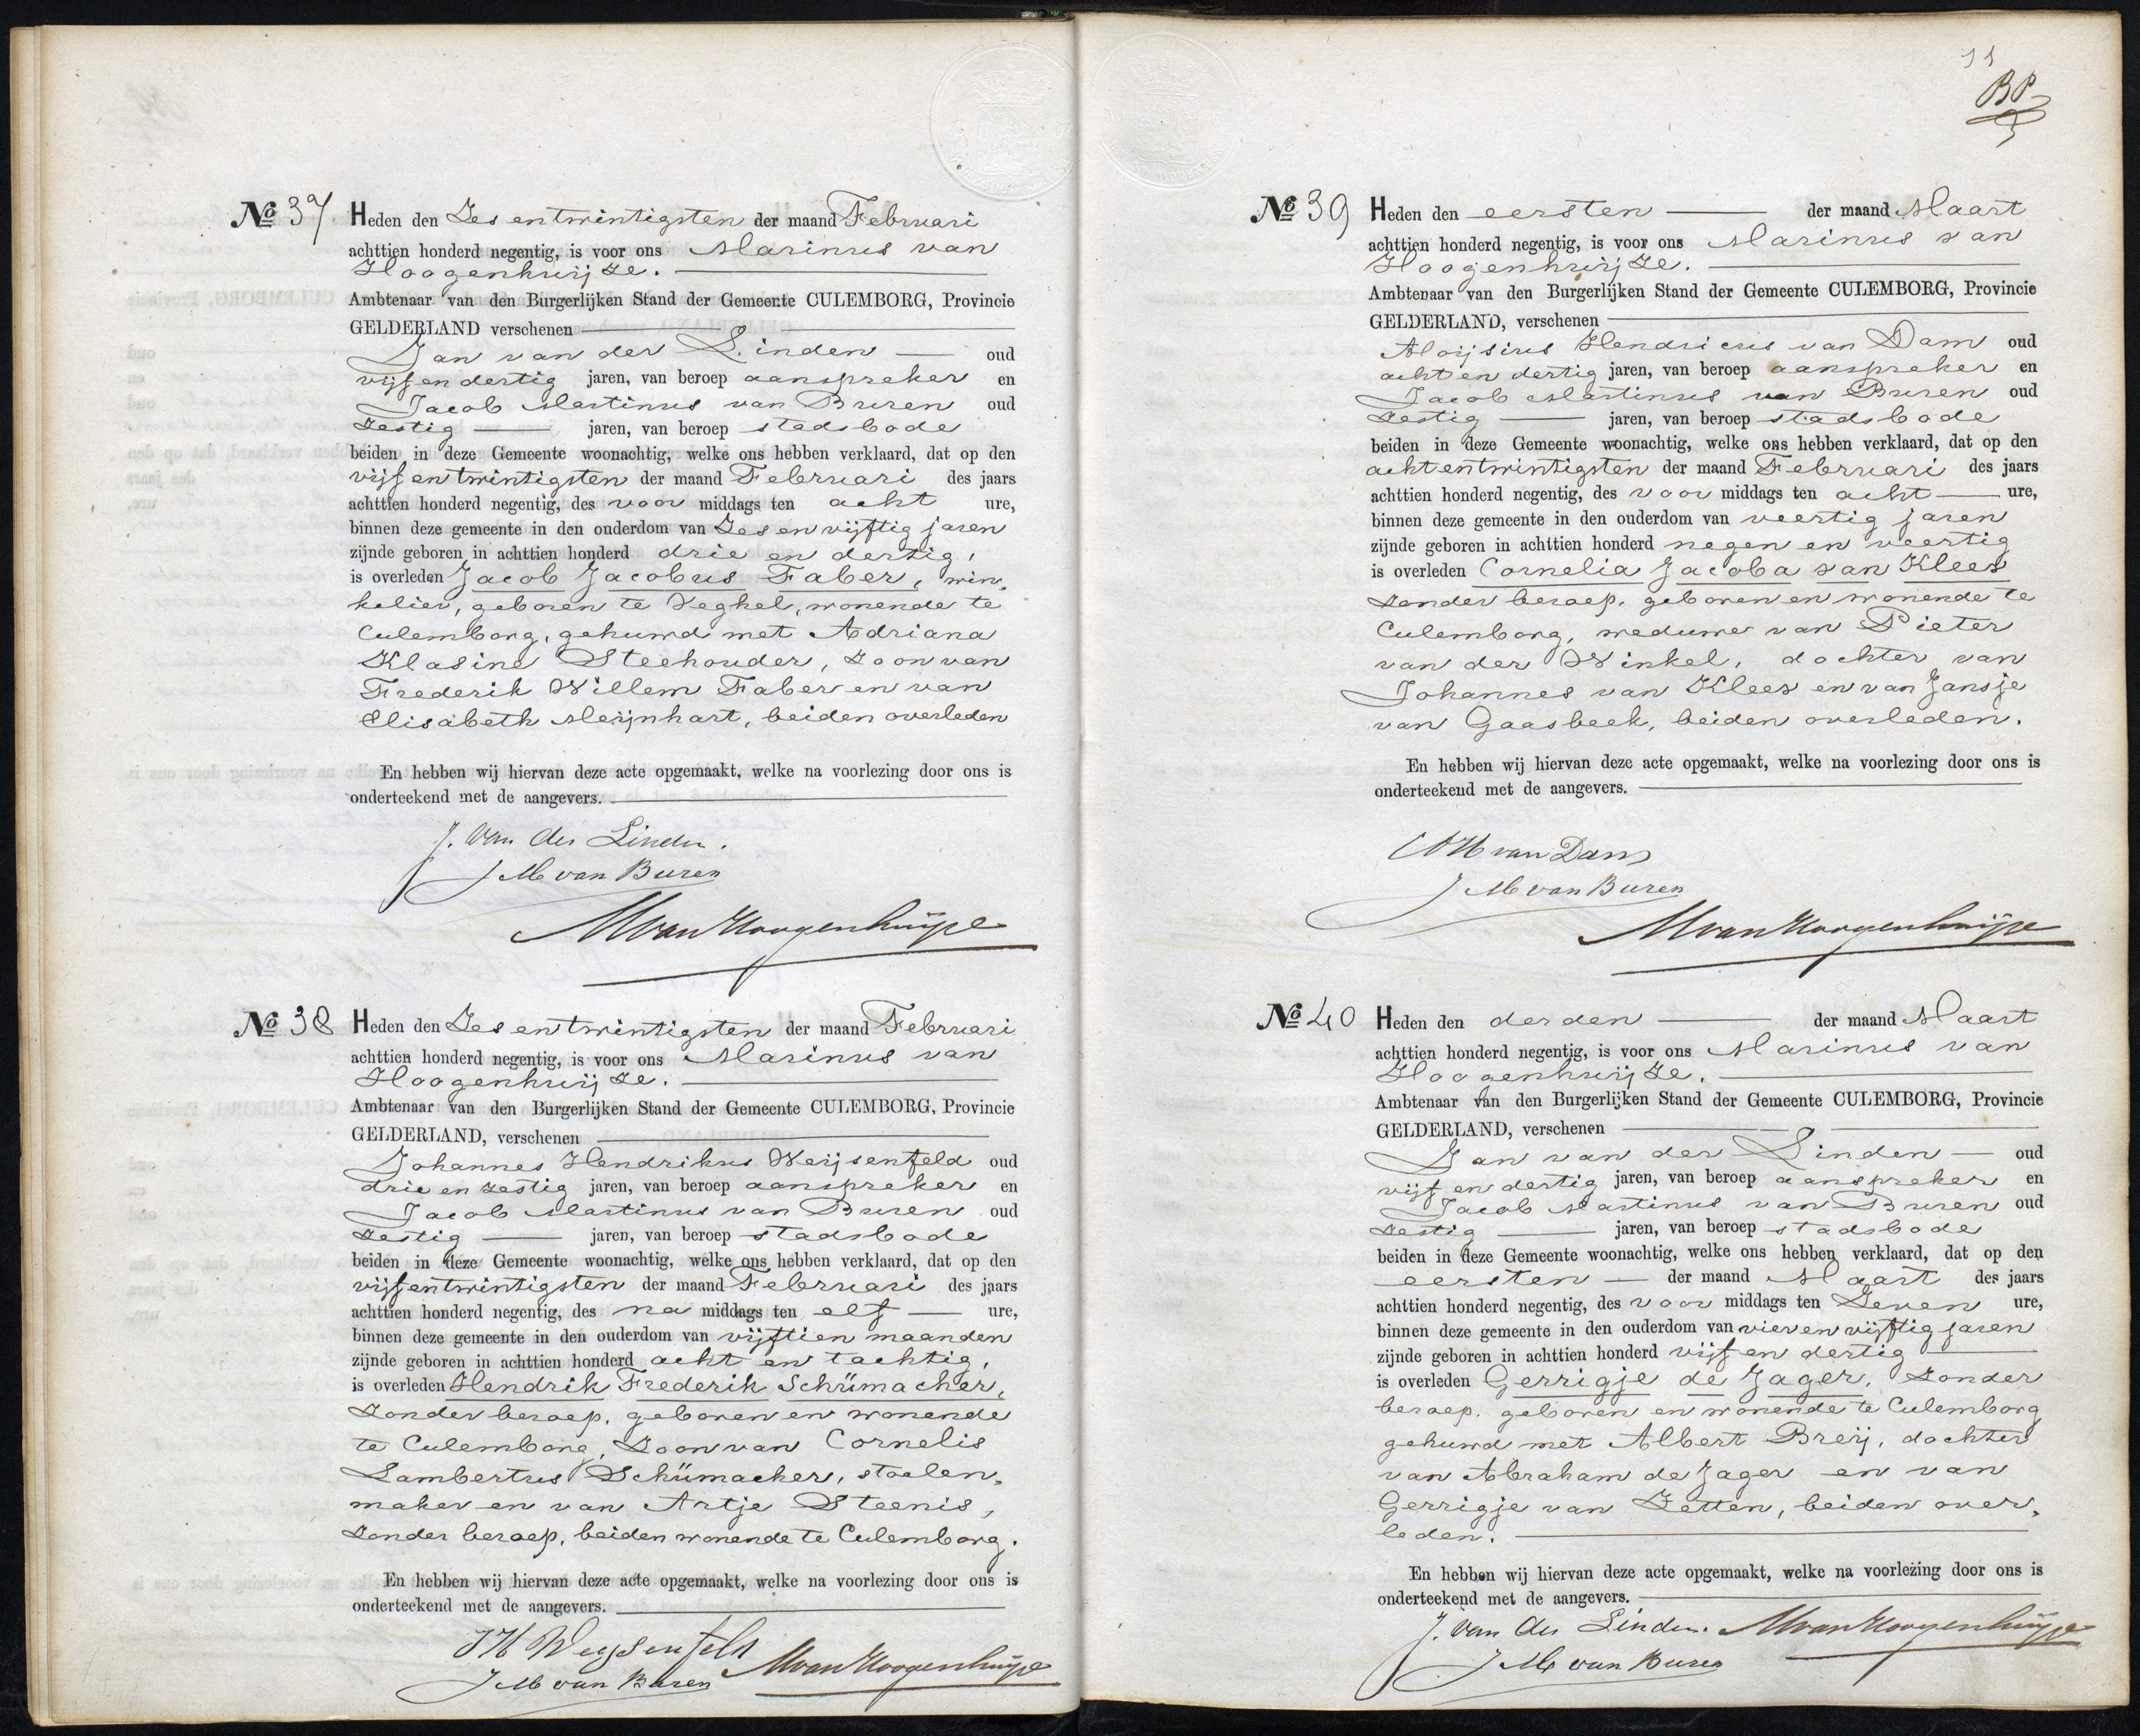 No 37 Heden den Zes en twintigsten der maand Februari
achttien honderd negentig, is voor ons Marinus van
Hoogenhuijze.
Ambtenaar van den Burgerlijken Stand der Gemeente CULEMBORG, Provincie
GELDERLAND verschenen
Jan van der Linden oud
vijf en dertig jaren, van beroep aanspreker en
Jacob Martinus van Buren oud
Zestig jaren, van beroep stadsbode
beiden in deze Gemeente woonachtig, welke ons hebben verklaard, dat op den
vijf en twintigsten der maand Februari des jaars
achttien honderd negentig, des voor middags ten acht ure,
binnen deze gemeente in den ouderdom van Zes en vijftig jaren
zijnde geboren in achttien honderd drie en dertig,
is overleden Jacob Jacobus Faber, win-
kelier, geboren te Veghel, wonende te
Culemborg, gehuwd met Adriana
Klasina Steehouder, Zoon van
Frederik Willem Faber en van
Elisabeth Meijnhart, beiden overleden
En hebben wij hiervan deze acte opgemaakt, welke na voorlezing door ons is
onderteekend met de aangevers.
J. van der Linden.
J M van Buren
M van Hoogenhuijze
No 38 Heden den Zes en twintigsten der maand Februari
achttien honderd negentig, is voor ons Marinus van
Hoogenhuijze.
Ambtenaar van den Burgerlijken Stand der Gemeente CULEMBORG, Provincie
GELDERLAND, verschenen
Johannes Hendrikus Weijsenfeld oud
drie en zestig jaren, van beroep aanspreker en
Jacob Martinus van Buren oud
Zestig jaren, van beroep stadsbode
beiden in deze Gemeente woonachtig, welke ons hebben verklaard, dat op den
vijf en twintigsten der maand Februari des jaars
achttien honderd negentig, des na middags ten elf ure,
binnen deze gemeente in den ouderdom van vijftien maanden
zijnde geboren in achttien honderd acht en tachtig,
is overleden Hendrik Frederik Schümacher,
Zonder beroep, geboren en wonende
te Culemborg, Zoon van Cornelis
Lambertus Schümacher, stoelen-
maker en van Artje Steenis,
Zonder beroep, beiden wonende te Culemborg.
En hebben wij hiervan deze acte opgemaakt, welke na voorlezing door ons is
onderteekend met de aangevers.
J H Weijsenfeld
J M van Buren M van Hoogenhuijze
11
BP
No 39 Heden den eersten der maand Maart
achttien honderd negentig, is voor ons Marinus van
Hoogenhuijze.
Ambtenaar van den Burgerlijken Stand der Gemeente CULEMBORG, Provincie
GELDERLAND, verschenen
Aloijsius Hendricus van Dam oud
acht en dertig jaren, van beroep aanspreker en
Jacob Martinus van Buren oud
Zestig jaren, van beroep stadsbode
beiden in deze Gemeente woonachtig, welke ons hebben verklaard, dat op den
acht en twintigsten der maand Februari des jaars
achttien honderd negentig, des voor middags ten acht ure,
binnen deze gemeente in den ouderdom van veertig jaren
zijnde geboren in achttien honderd negen en veertig
is overleden Cornelia Jacoba van Kleef
Zonder beroep, geboren en wonende te
Culemborg, weduwe van Pieter
van der Winkel, dochter van
Johannes van Kleef en van Jansje
van Gaasbeek, beiden overleden.
En hebben wij hiervan deze acte opgemaakt, welke na voorlezing door ons is
onderteekend met de aangevers.
A H van Dam
J M van Buren
M van Hoogenhuijze
No 40 Heden den derden der maand Maart
achttien honderd negentig, is voor ons Marinus van
Hoogenhuijze.
Ambtenaar van den Burgerlijken Stand der Gemeente CULEMBORG, Provincie
GELDERLAND, verschenen
Jan van der Linden oud
vijf en dertig jaren, van beroep aanspreker en
Jacob Martinus van Buren oud
Zestig jaren, van beroep stadsbode
beiden in deze Gemeente woonachtig, welke ons hebben verklaard, dat op den
eersten der maand Maart des jaars
achttien honderd negentig, des voor middags ten Zeven ure,
binnen deze gemeente in den ouderdom van vier en vijftig jaren
zijnde geboren in achttien honderd vijf en dertig
is overleden Gerrigje de Jager, Zonder
beroep, geboren en wonende te Culemborg
gehuwd met Albert Breij, dochter
van Abraham de Jager en van
Gerrigje van Zetten, beiden over-
leden.
En hebben wij hiervan deze acte opgemaakt, welke na voorlezing door ons is
onderteekend met de aangevers.
J. van der Linden. M van Hoogenhuijze
J M van Buren